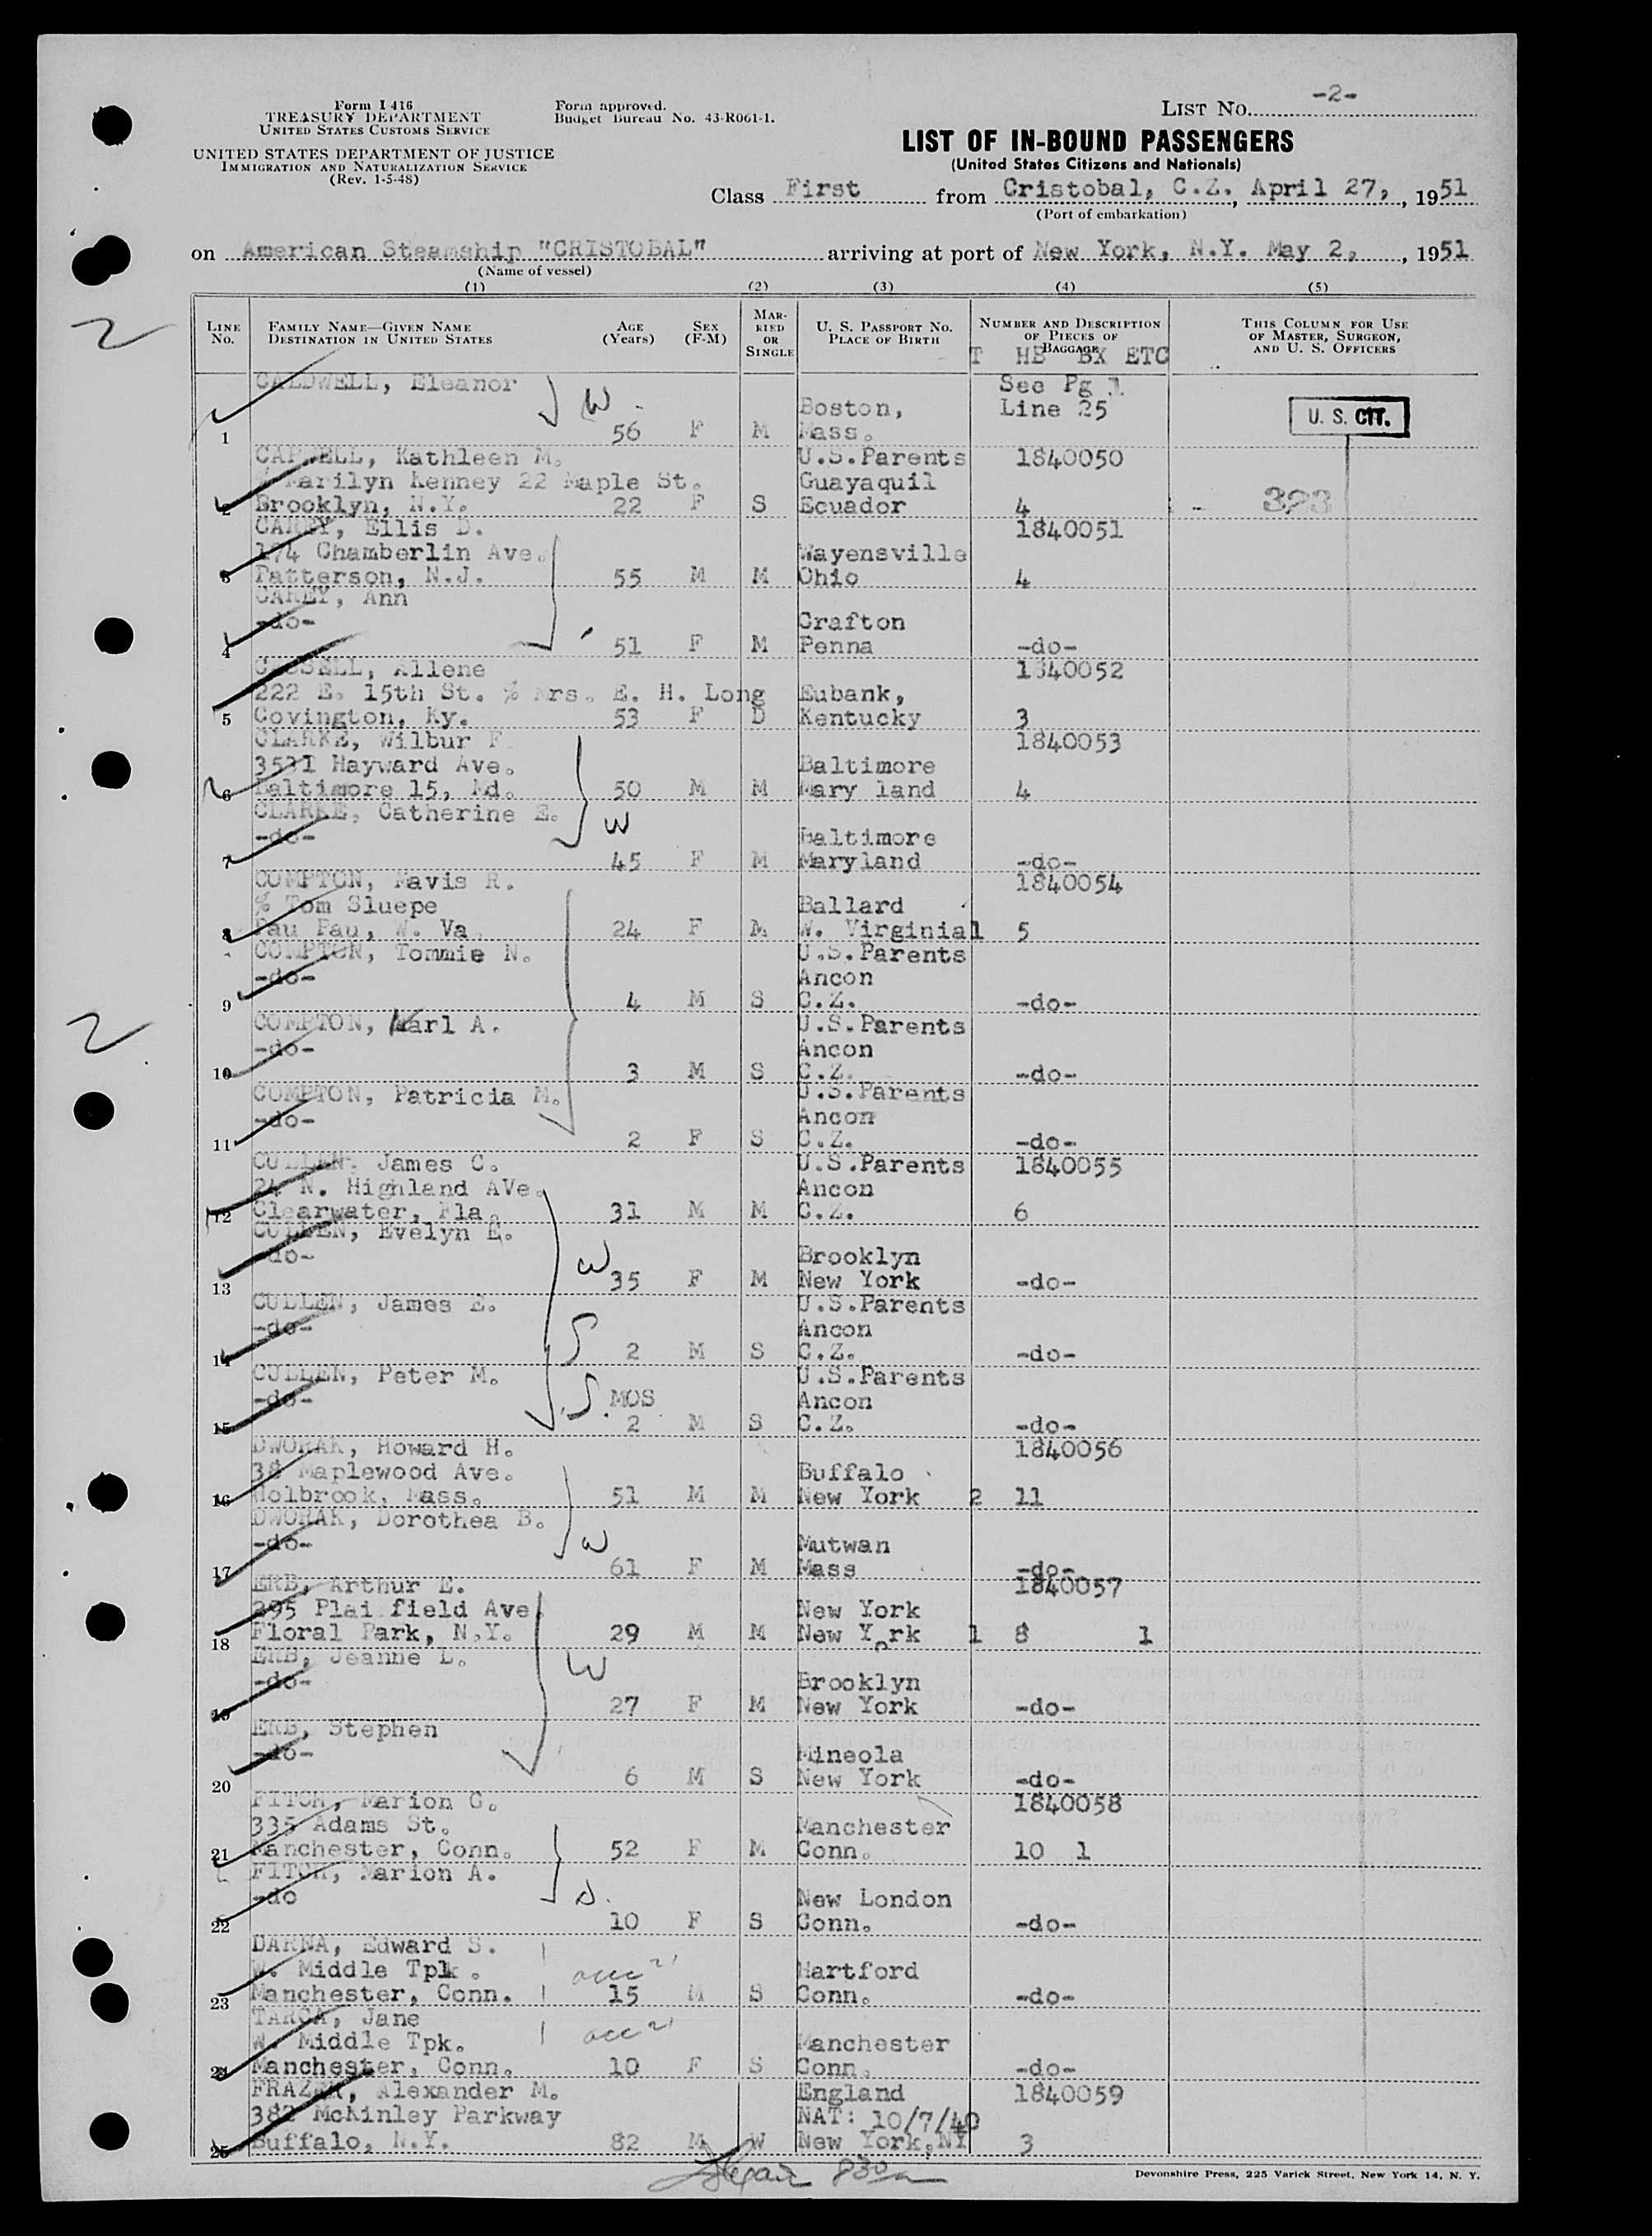 Form I 416
TREASURY DEPARTMENT
UNITED STATES CUSTOMS SERVICE
UNITED STATES DEPARTMENT OF JUSTICE
IMMIGRATION AND NATURALIZATION SERVICE
(Rev. 1-5-48)
Form approved.
Budget Bureau No. 43-R061-1.
LIST NO. -2-
LIST OF IN-BOUND PASSENGERS
(United States Citizens and Nationals)
Class First from Cristobal, C.Z., April 27, , 1951
(Port of embarkation)
on American Steamship "CRISTOBAL" arriving at port of New York, N.Y. May 2, , 1951
(Name of vessel)
(1) (2) (3) (4) (5)
LINE NO. FAMILY NAME—GIVEN NAME DESTINATION IN UNITED STATES AGE (Years) SEX (F-M) MARRIED OR SINGLE U. S. PASSPORT NO. PLACE OF BIRTH NUMBER AND DESCRIPTION OF PIECES OF BAGGAGE THIS COLUMN FOR USE OF MASTER, SURGEON, AND U. S. OFFICERS
T HB BX ETC
2
CALDWELL, Eleanor See Pg 1
W Boston, Line 25 U. S. CIT.
1 56 F M Mass.
CARWELL, Kathleen M. U.S.Parents 1840050
% Marilyn Kenney 22 Maple St. Guayaquil
2 Brooklyn, N.Y. 22 F S Ecuador 4 323
CAREY, Ellis D. 1840051
174 Chamberlin Ave. Wayensville
3 Patterson, N.J. 55 M M Ohio 4
CAREY, Ann
-do- Crafton
4 51 F M Penna -do-
CASSELL, Allene 1840052
222 E. 15th St. % Mrs. E. H. Long Eubank,
5 Covington, Ky. 53 F D Kentucky 3
CLARKE, Wilbur F 1840053
3531 Hayward Ave. Baltimore
6 Baltimore 15, Md. 50 M M Mary land 4
CLARKE, Catherine E. W
-do- Baltimore
7 45 F M Maryland -do-
COMPTON, Mavis R. 1840054
% Tom Sluepe Ballard
8 Pau Pau, W. Va 24 F M W. Virginia1 5
COMPTON, Tommie N. U.S.Parents
-do- Ancon
9 4 M S C.Z. -do-
2
COMPTON, Karl A. U.S.Parents
-do- Ancon
10 3 M S C.Z. -do-
COMPTON, Patricia M. U.S.Parents
-do- Ancon
11 2 F S C.Z. -do-
CULLEN, James C. U.S.Parents 1840055
24 N. Highland AVe. Ancon
12 Clearwater, Fla. 31 M M C.Z. 6
CULLEN, Evelyn E.
-do- W Brooklyn
13 35 F M New York -do-
CULLEN, James E. U.S.Parents
-do- S Ancon
14 2 M S C.Z. -do-
CULLEN, Peter M. U.S.Parents
-do- S. MOS Ancon
15 2 M S C.Z. -do-
DWORAK, Howard H. 1840056
38 Maplewood Ave. Buffalo
16 Holbrook, Mass. 51 M M New York 2 11
DWORAK, Dorothea B.
-do- W Mutwan
17 61 F M Mass -do-
ERB, Arthur E. 1840057
395 Plai field Ave. New York
18 Floral Park, N.Y. 29 M M New York 1 8 1
ERB, Jeanne L. W
-do- Brooklyn
19 27 F M New York -do-
ERB, Stephen
-do- Mineola
20 6 M S New York -do-
FITCH, Marion G. 1840058
335 Adams St. Manchester
21 Manchester, Conn. 52 F M Conn. 10 1
FITCH, Marion A.
-do New London
22 10 F S Conn. -do-
DARNA, Edward S.
W. Middle Tpk. Hartford
23 Manchester, Conn. 15 M S Conn. -do-
TARCA, Jane
W. Middle Tpk. Manchester
24 Manchester, Conn. 10 F S Conn. -do-
FRAZER, Alexander M. England 1840059
382 McKinley Parkway NAT: 10/7/40
25 Buffalo, N.Y. 82 M W New York,NY 3
830
Devonshire Press, 225 Varick Street, New York 14, N. Y.